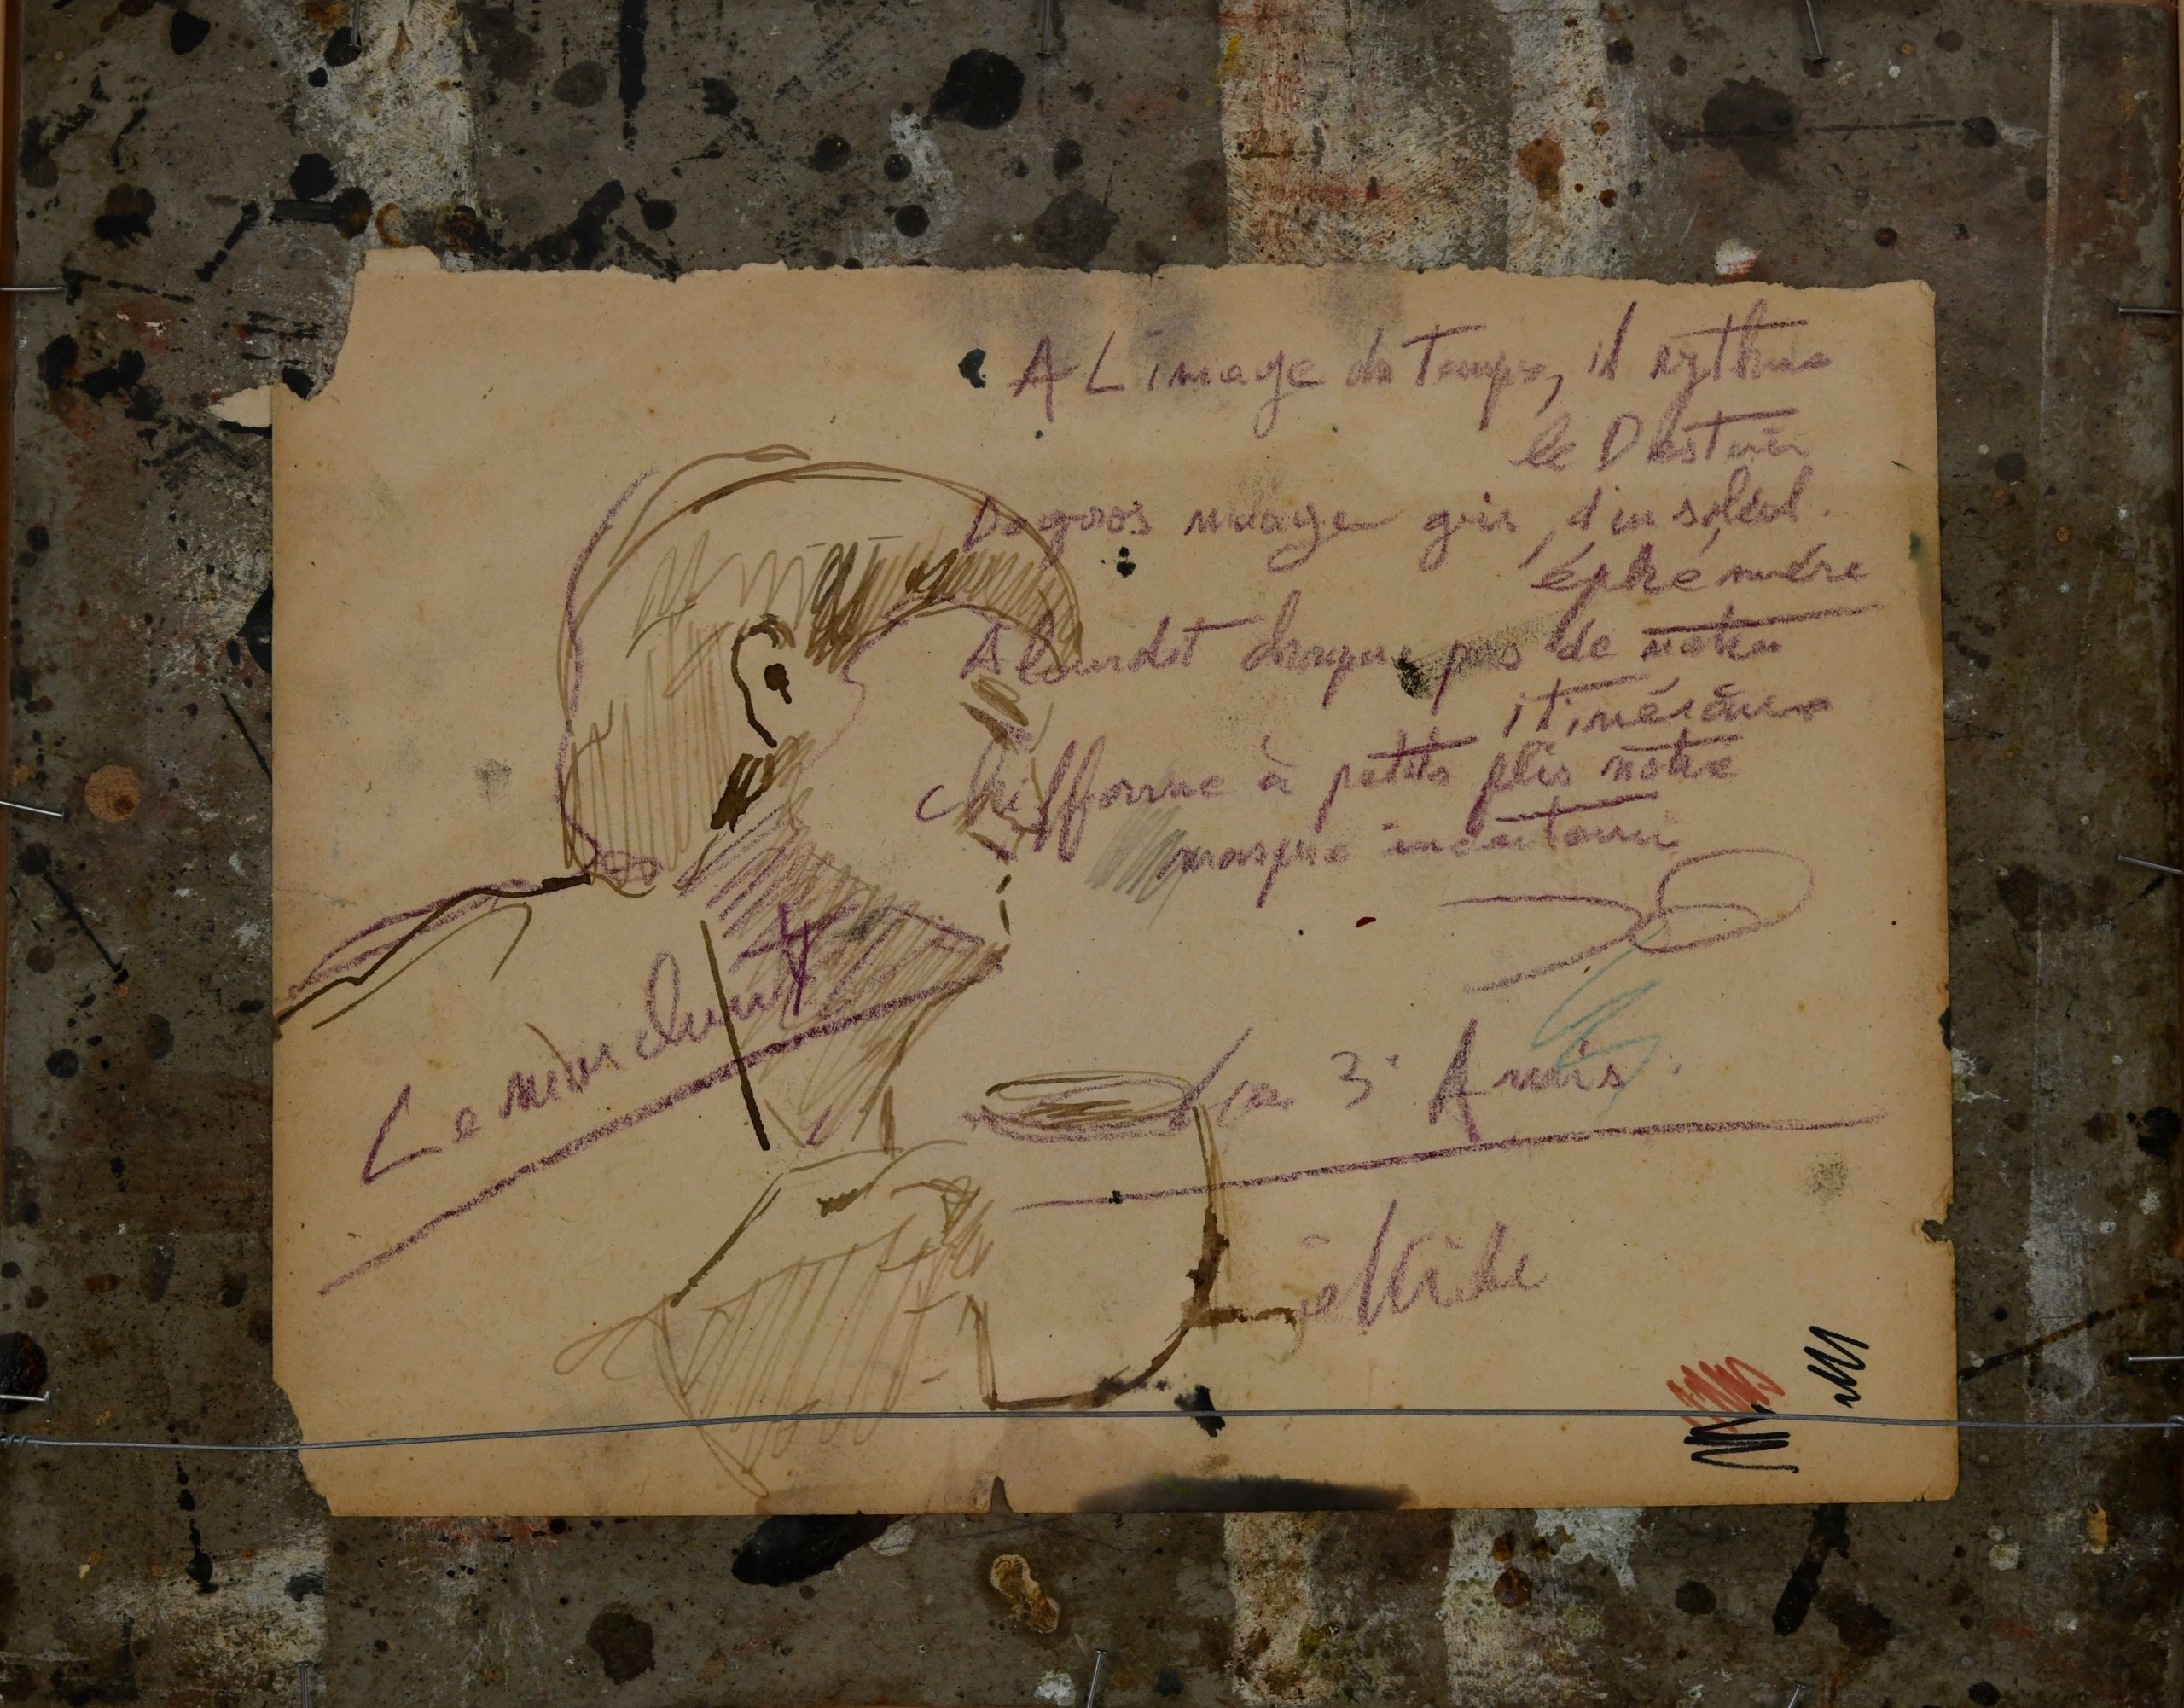 A L'image du Temps, il rythme
le Destin
De gros nuage gris, d'un soleil
éphémère
Alourdit chaque pas de notre
itinéraire
chiffonne à petits plis notre
masque incertain
Le
La 3e Amis.